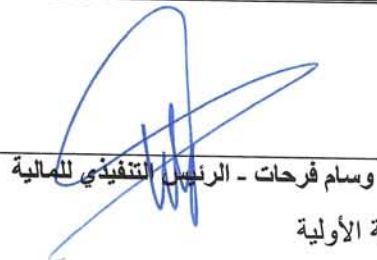 وسام فرحات - الرئيس التنفيذي للمالية
الأولية